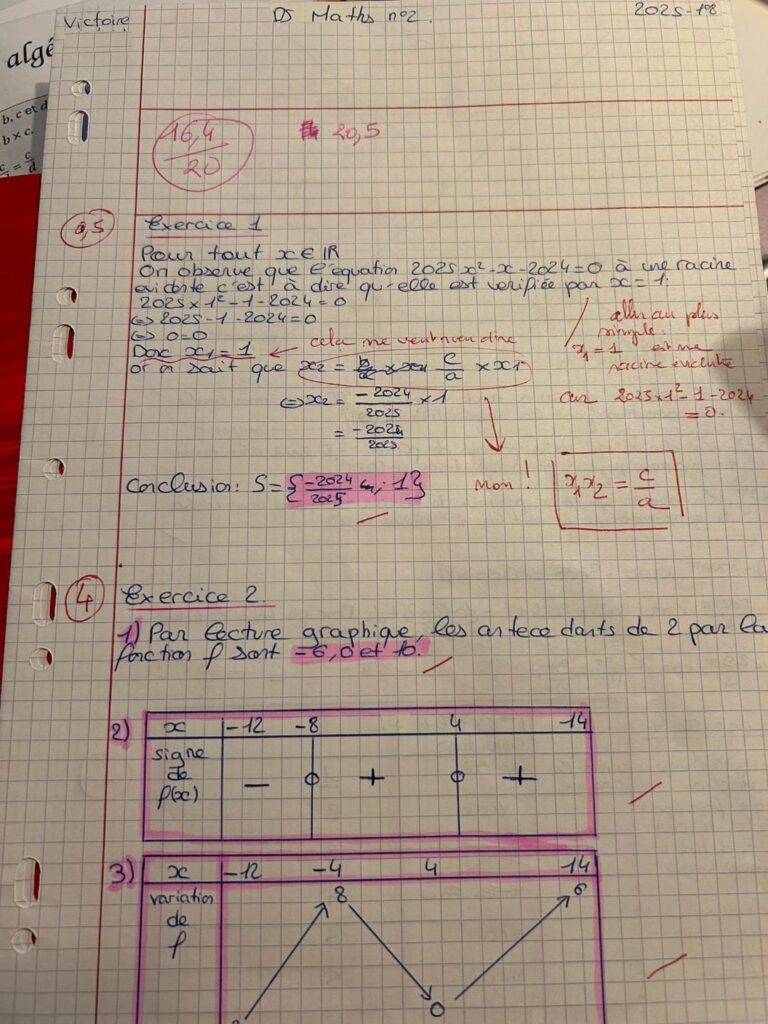 algé
b, c et d
b × c.
c = c/d
Victoire DS Maths n°2. 2025-
16,4/20 20,5
0,5 Exercice 1
Pour tout x ∈ IR
On observe que l'équation 2025x²-x-2024=0 à une racine
évidente c'est à dire qu'elle est verifiée par x = 1.
2025×1²-1-2024=0
⇔ 2025-1-2024=0
⇔ 0=0
Donc x1 = 1 ← cela ne veut rien dire
aller au plus
simple.
x1 = 1 est une
racine évidente
car 2025×1²-1-2024
= 0.
or on sait que x2 = c/a × x1
⇔ x2 = -2024/2025 × 1
= -2024/2025
Conclusion: S = {-2024/2025 ; 1}
non ! x1x2 = c/a
4 Exercice 2.
1) Par lecture graphique, les antecedants de 2 par la
fonction f sont -6, 0 et 10.
2) x -12 -8 4 14
signe
de
f(x) − 0 + 0 +
3) x -12 -4 4 14
variation 8 6
de
f
0